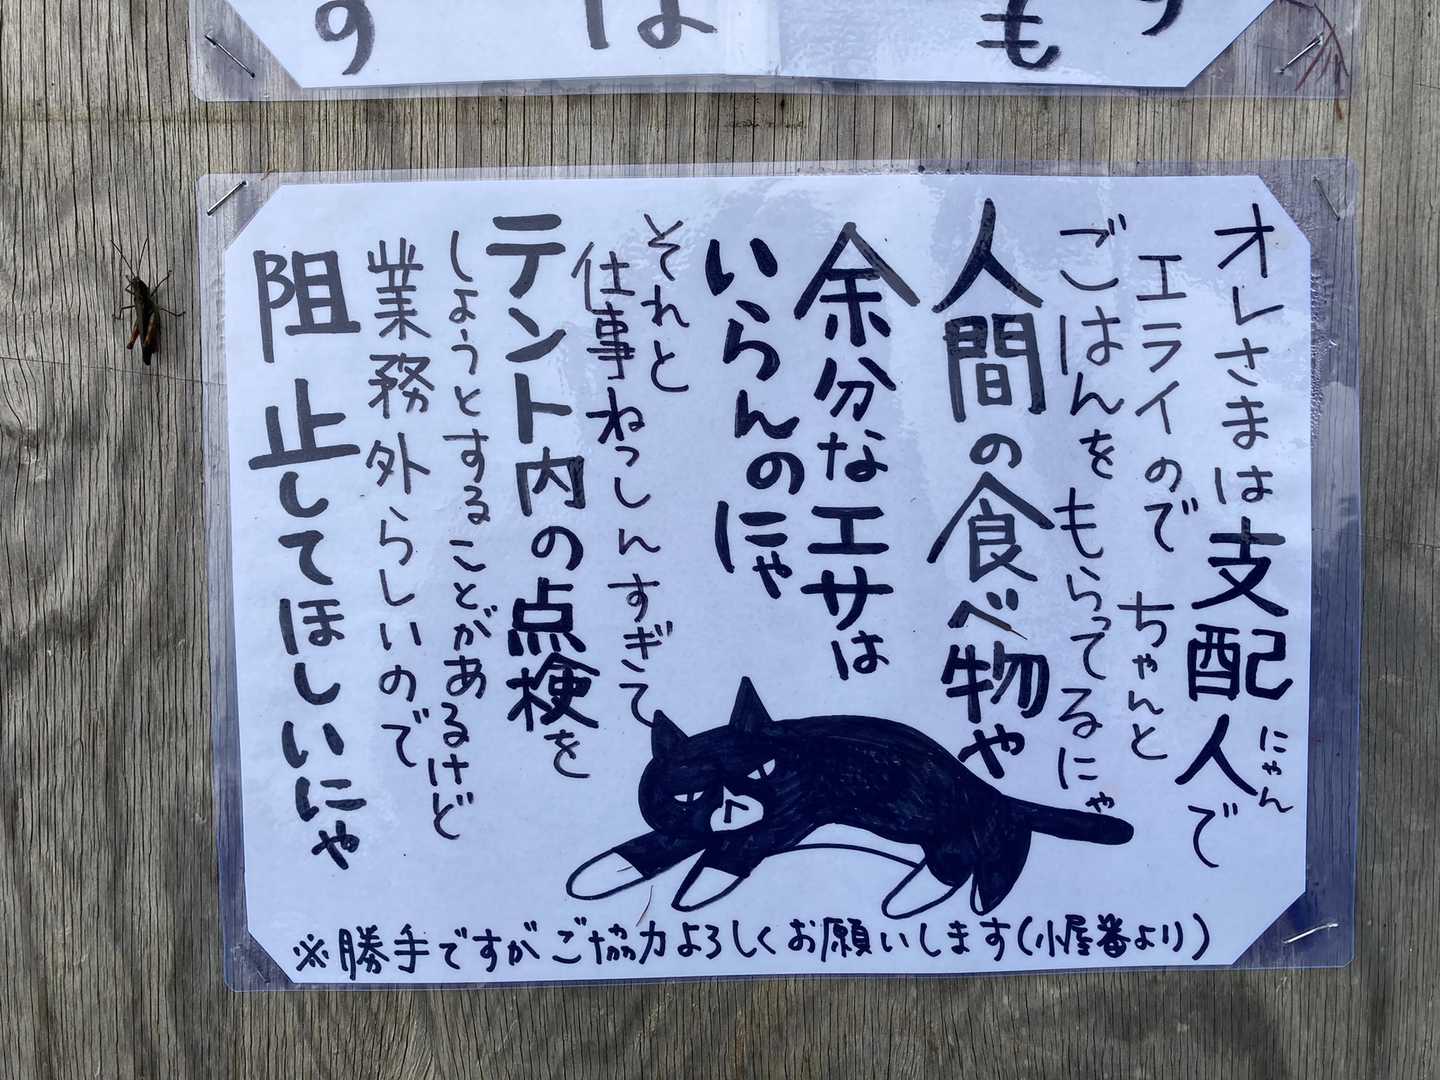 す は す
も
オレさまは支配人で
にゃん
エライので ちゃんと
ごはんをもらってるにゃ
人間の食べ物や
余分なエサは
いらんのにゃ
それと
仕事ねっしんすぎて
テント内の点検を
しようとすることがあるけど
業務外らしいので
阻止してほしいにゃ
※勝手ですがご協力よろしくお願いします(小屋番より)